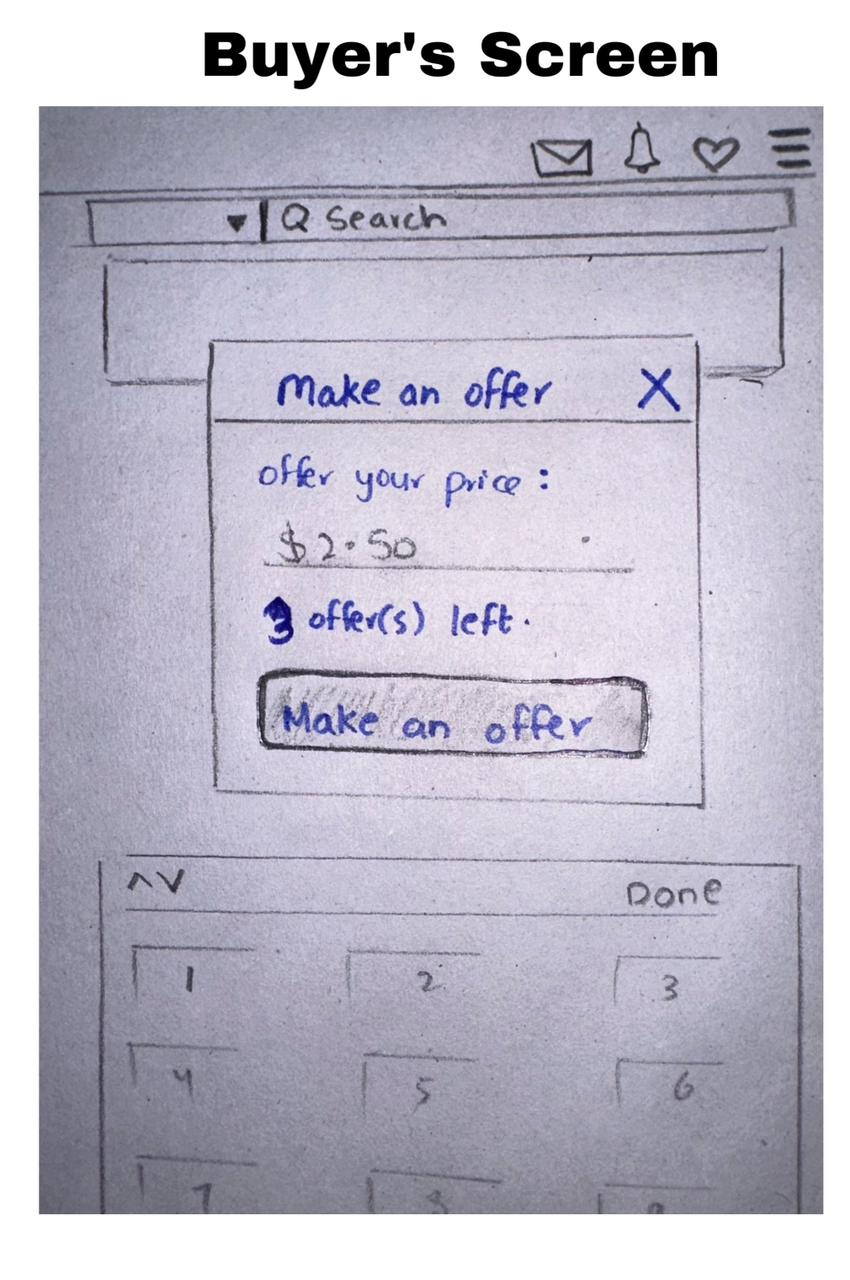 Buyer's Screen
Search
Make an offer X
offer your price :
$2.50
3 offer(s) left.
Make an offer
Done
1 2 3
4 5 6
7 8